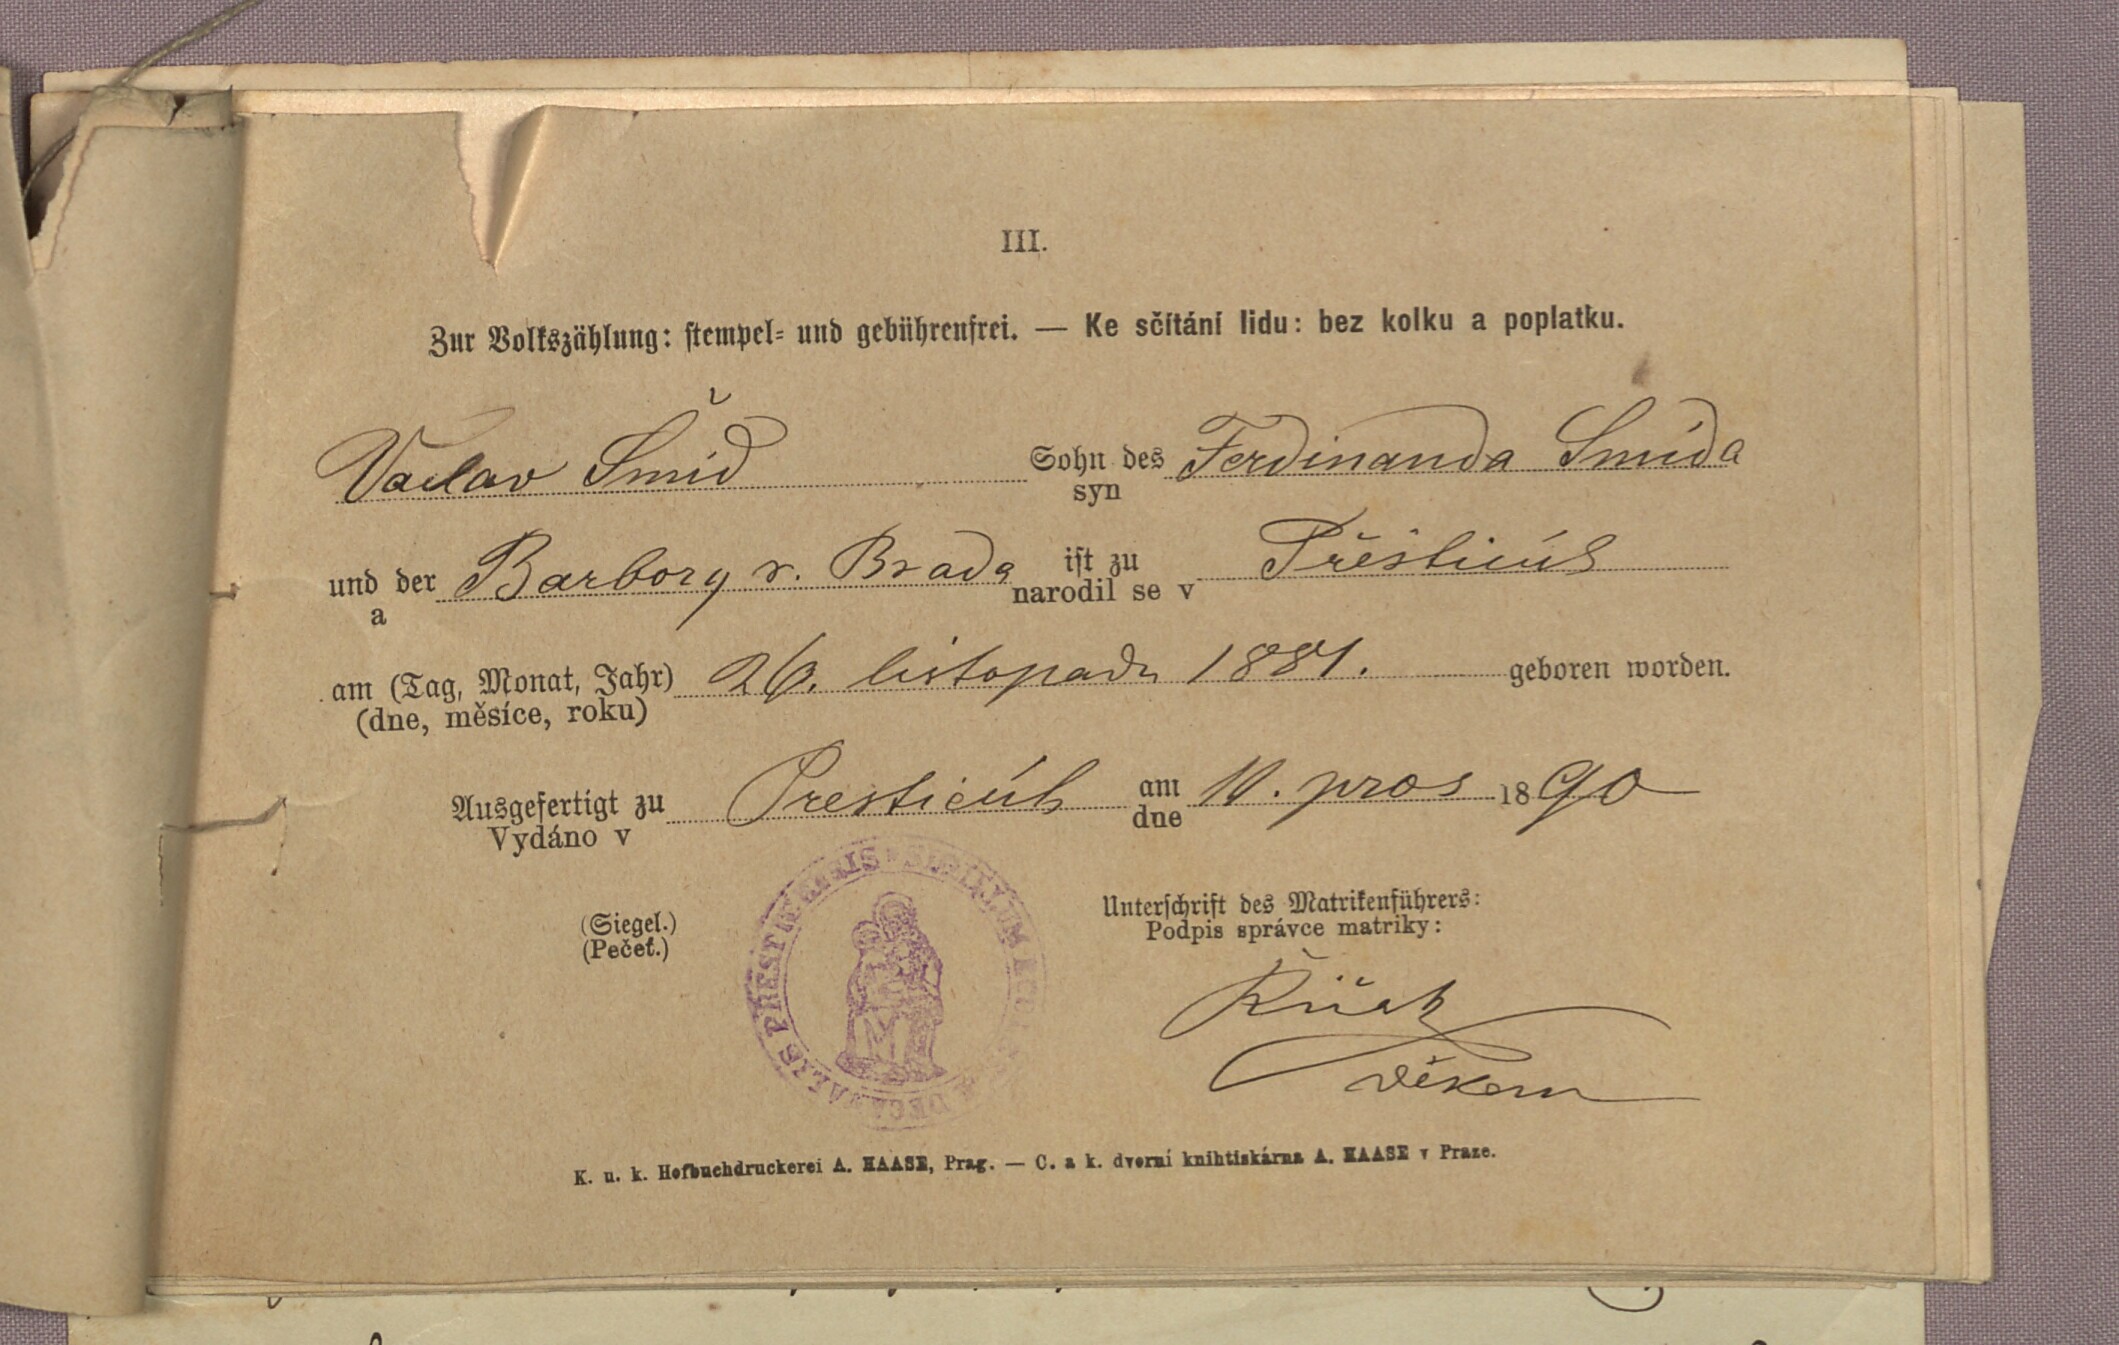 III.
Zur Volkszählung: stempel- und gebührenfrei. — Ke sčítání lidu: bez kolku a poplatku.
Václav Šmíd Sohn des Ferdinanda Šmída
syn
und der Barbory r. Brada ist zu Přešticích
a narodil se v
am (Tag, Monat, Jahr) 26. listopadu 1881. geboren worden.
(dne, měsíce, roku)
Ausgefertigt zu Presticích am 10. pros 1890
Vydáno v dne
(Siegel.) Unterschrift des Matrikenführers:
(Pečeť.) Podpis správce matriky:
děkan
K. u. k. Hofbuchdruckerei A. HAASE, Prag. — C. a k. dvorní knihtiskárna A. HAASE v Praze.